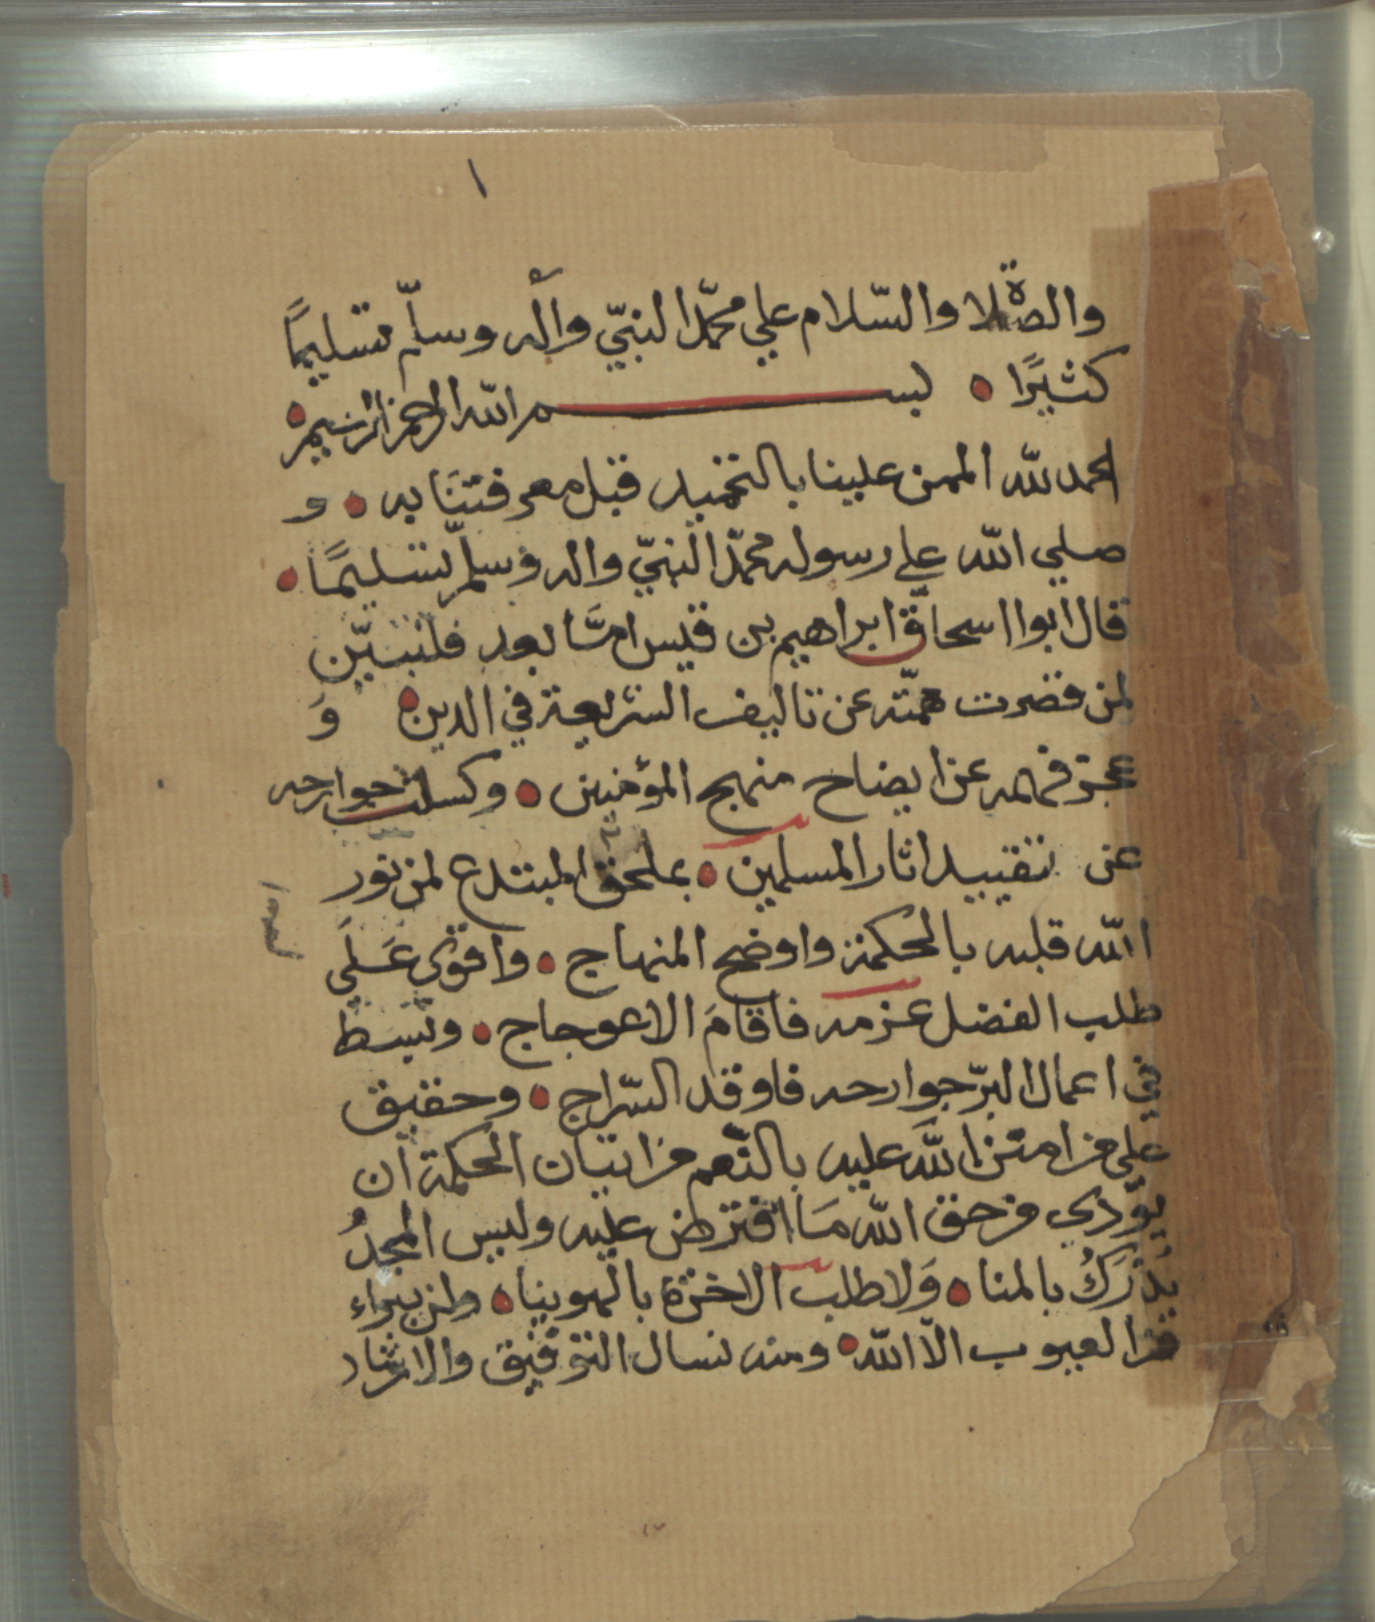 ١
والصلاة والسّلام علي محمّد النبيّ وآله وسلّم تسليمًا
كثيرًا ه بسم الله الرحمن الرحيم ه
الحمد لله الممن علينا بالتحميد قبل معرفتنا به ه و
صلي الله علي رسوله محمّد النبيّ واله وسلم تسليمًا ه
قال ابوا اسحاق ابراهيم بن قيس امّا بعد فلنبيّن
لمن قصرت همّته عن تاليف الشريعة في الدين ه وَ
عجز فهمه عن ايضاح منهج المؤمنين ه وكسلت جوارحه
عن تقييد اثار المسلمين ه بملحق المبتدع لمن نور
الله قلبه بالحكمة واوضح المنهاج ه واقوى عَلَي
طلب الفضل عزمه فاقامَ الاعوجاج ه وبسط
في اعمال البرّ جوارحه فاوقد السّراج ه وحقيق
علي من امتن اللّه عليه بالنّعم من اتيان الحكمة ان
يوّدي من حق الله مَا افترض عليه وليس المجدُ
يُدْرَكُ بالمنا ه وَلا طلب الاخرة بالهوينا ه ولن يبراء
من العيوب الّا الله ه ومنه نسال التوفيق والارشاد